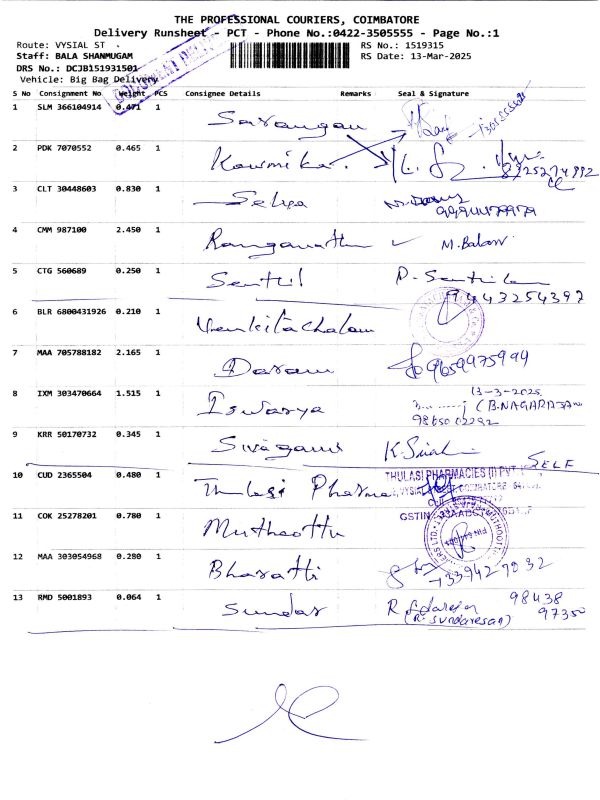 THE PROFESSIONAL COURIERS, COIMBATORE
Delivery Runsheet - PCT - Phone No.:0422-3505555 - Page No.:1
Route: VYSIAL ST
RS No.: 1519315
Staff: BALA SHANMUGAM
RS Date: 13-Mar-2025
DRS No.: DCJB151931501
Vehicle: Big Bag Delivery
S No Consignment No Weight PCS Consignee Details Remarks Seal & Signature
1 SLM 366104914 0.471 1 Sarangan
2 PDK 7070552 0.465 1 Kowmika
3 CLT 30448603 0.830 1 Selva
4 CMM 987100 2.450 1 Ranganathan M.Balan
5 CTG 560689 0.250 1 Senthil
9443254397
6 BLR 6800431926 0.210 1 Venkitachalam
7 MAA 705788182 2.165 1 9659975994
8 IXM 303470664 1.515 1 Iswarya 13-3-2025
(B.NAGARAJAN
9 KRR 50170732 0.345 1 Sivagami
SELF
10 CUD 2365504 0.480 1 Thulasi Pharma THULASI PHARMACIES (I) PVT
GSTIN
11 COK 25278201 0.780 1 Muthoottu
12 MAA 303054968 0.280 1 Bharathi
13 RMD 5001893 0.064 1 Sundar 98438
(R. Sundaresan) 97350